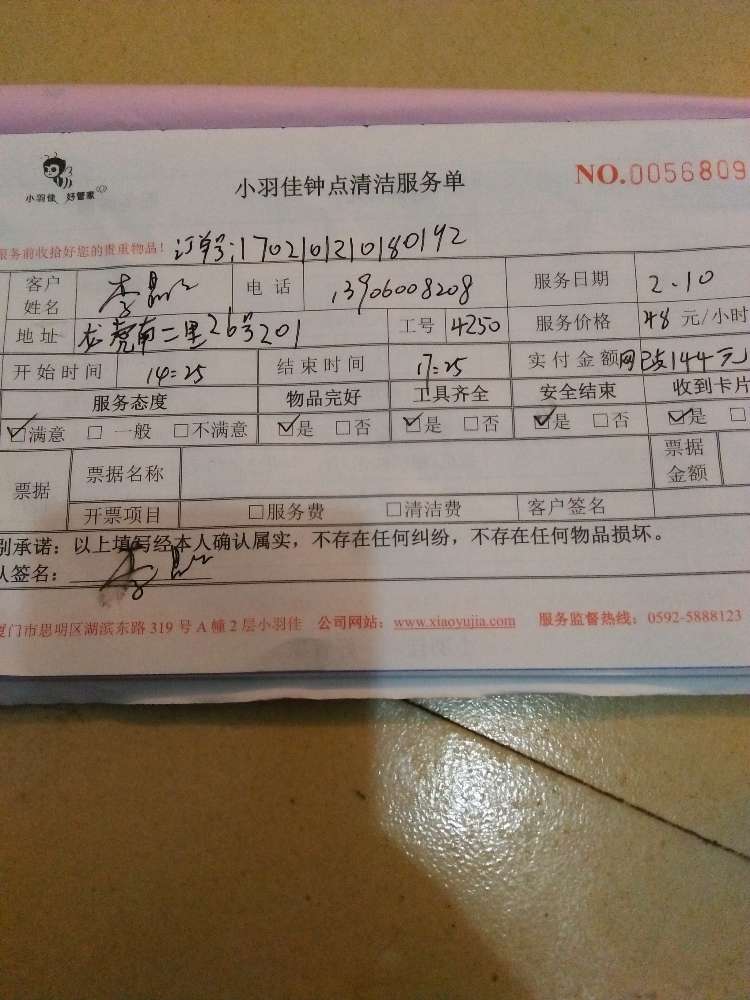 小羽佳 好管家
小羽佳钟点清洁服务单
NO.0056809
服务前收拾好您的贵重物品! 订单号:170210210180192
客户姓名 李 电话 13906008208 服务日期 2.10
地址 龙虎南二里26号201 工号 4250 服务价格 48 元/小时
开始时间 14:25 结束时间 17:25 实付金额 网已支144元
服务态度 物品完好 工具齐全 安全结束 收到卡片
☑满意 □一般 □不满意 ☑是 □否 ☑是 □否 ☑是 □否 ☑是 □
票据 票据名称 票据金额
开票项目 □服务费 □清洁费 客户签名
别承诺:以上填写经本人确认属实,不存在任何纠纷,不存在任何物品损坏。
人签名: 李
厦门市思明区湖滨东路 319 号 A 幢 2 层小羽佳 公司网站:www.xiaoyujia.com 服务监督热线:0592-5888123